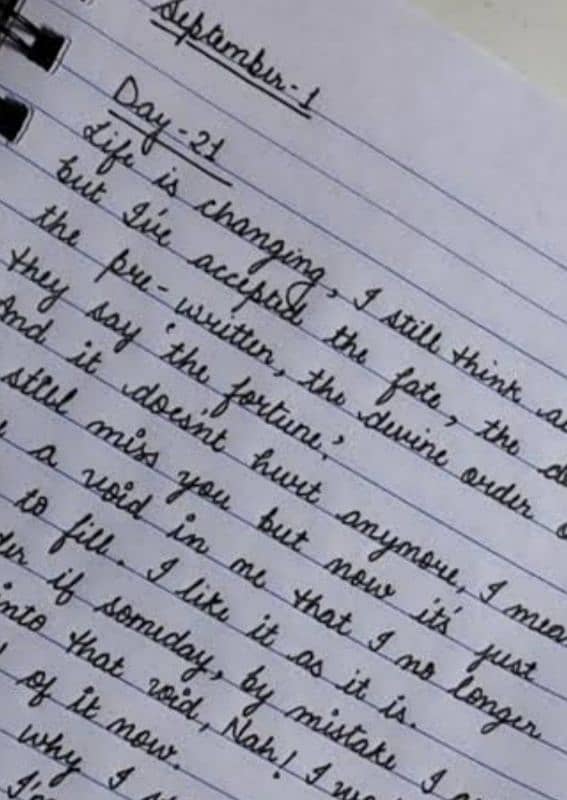 September-1
Day-21
Life is changing, I still think
but I've accepted the fate, the
the pre-written, the devine order
they say 'the fortune'.
And it doesn't hurt anymore, I
still miss you but now it's just
a void in me that I no longer
to fill. I like it as it is.
if someday, by mistake I
into that void, Nah! I
of it now.
why I